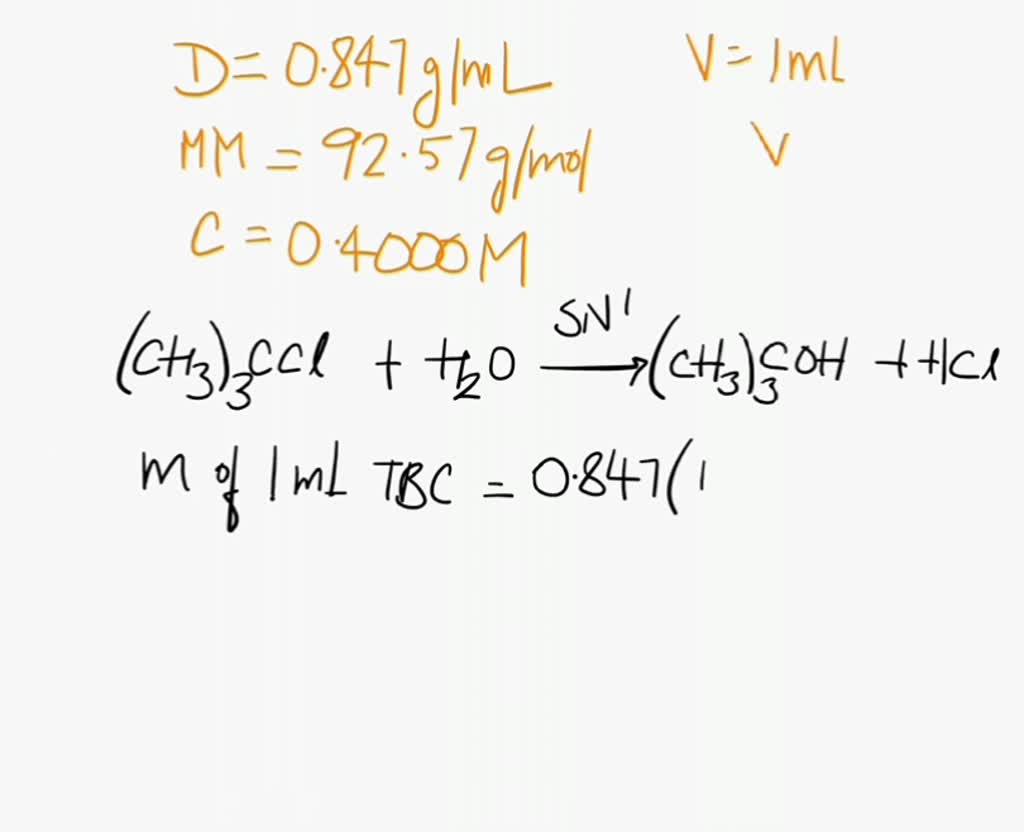 D = 0.847 g/mL V = 1mL
MM = 92.57 g/mol V
C = 0.4000 M
SN1
(CH3)3CCl + H2O → (CH3)3COH + HCl
m of 1mL TBC = 0.847(1